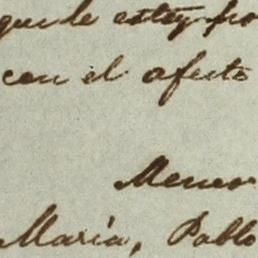 que de estey fio
con el afecto
Menor
María, Pablo